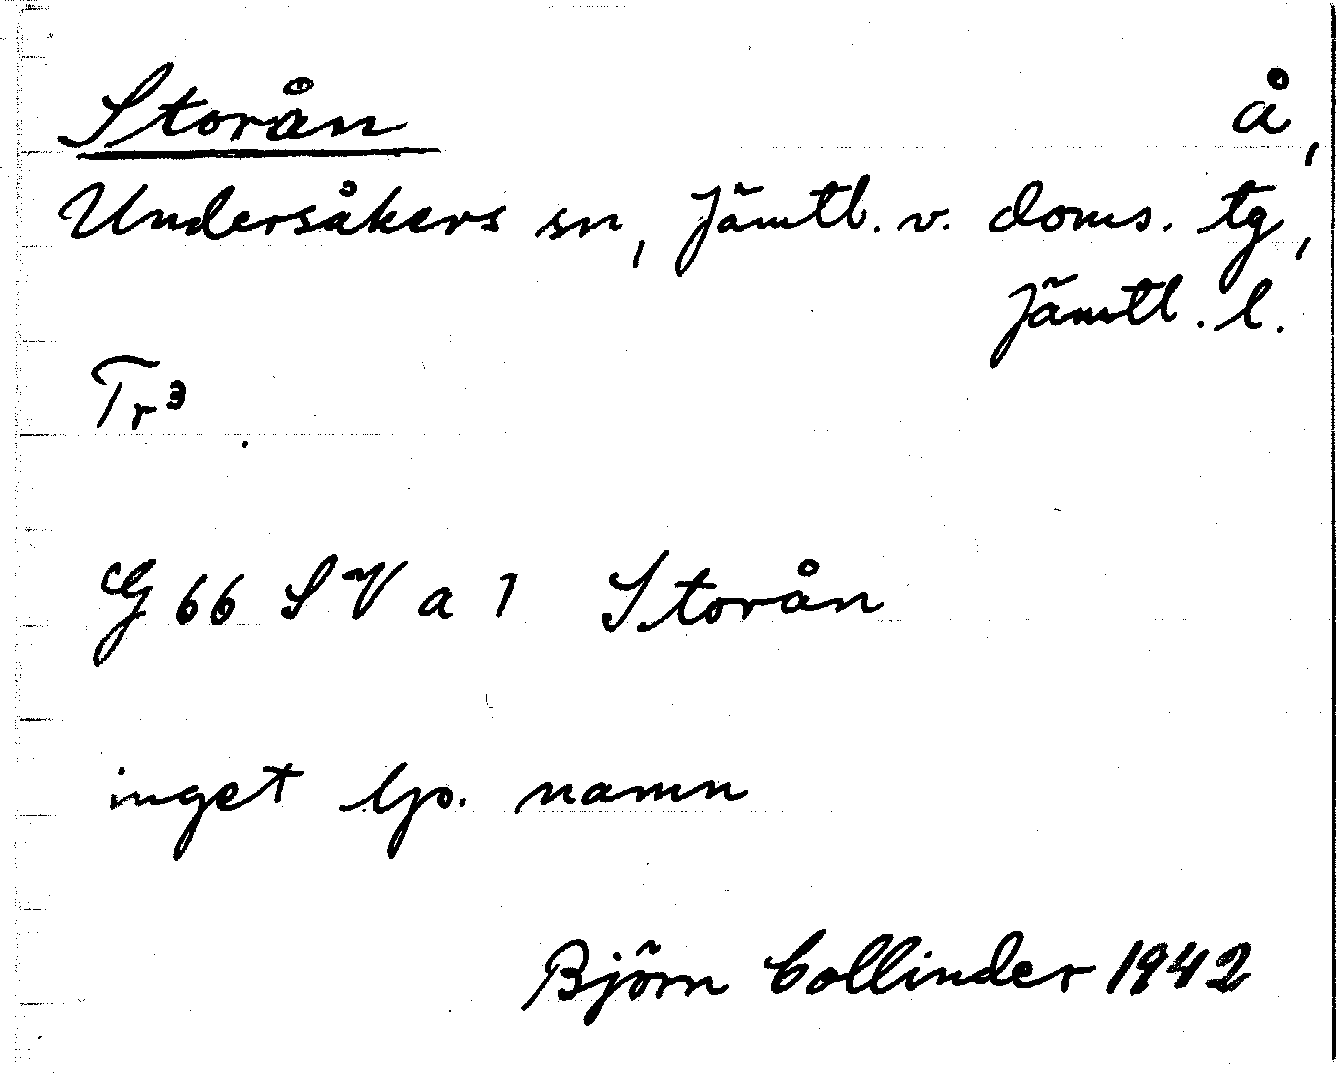 Storån å,
Undersåkers sn, Jämtl. v. doms. tg,
Jämtl. l.
Tr³
G 66 S V a 1 Storån
inget lp. namn
Björn Collinder 1942